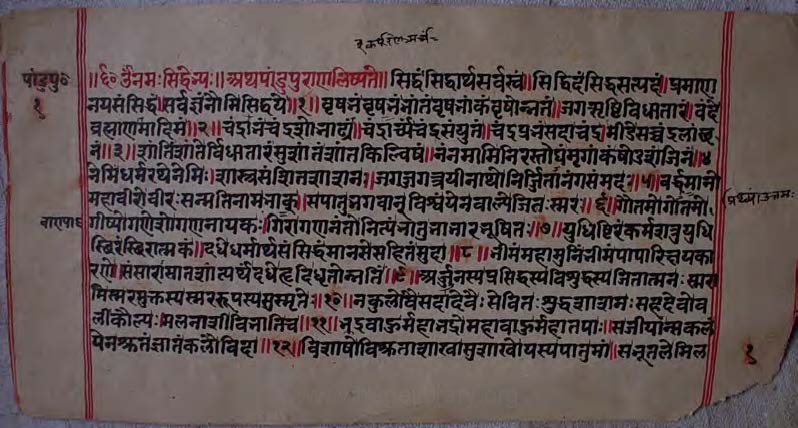 पांडुपु०
१
॥६०॥ उँनमः सिद्धेभ्यः॥ अथपांडुपुराणलिष्यते॥ सिद्धंसिद्धार्थसर्वस्वं॥ सिद्धिदंसिद्धसत्पदं॥ प्रमाण
नयसंसिद्धं॥ सर्वज्ञंनौमिसिद्धये॥१॥ वृषभंवृषभंभांतंवृषभांकंवृषोन्नतं॥ जगत्सृष्टिविधातारं॥ वंदे
ब्रह्माणमादिमं॥२॥ चंद्राभंचंद्रशोभाढ्यं॥ चंद्रार्च्यंचंद्रसंयुतं॥ चंद्रप्रभंसदाचंद्रमीडेसच्चंद्रलांछ
नं॥३॥ शांतिंशांतेर्विधातारंसुशांतंशांतकिल्विषं॥ नंनमामिनिरस्तोघंमृगांकंषोडशंजिनं॥४
नेमिर्धर्मरथेनेमिः॥ शास्त्रसंशितशाशनः॥ जगज्जगत्त्रयीनाथोनिर्जितानंगसंमदः॥५॥ वर्द्धमानो
महावीरोवीरःसन्मतिनामभाक्॥ संपातुभगवान्विश्वंयेनबाल्येजितःस्मरः॥६॥ गौतमोगोतमो
गीष्पोगणेशोगणनायकः॥ गिरागणनंतोनित्यंभातुभाभारभूषितः॥७॥ युधिष्ठिरंकर्मशत्रुयुधि
स्थिरंस्थिरात्मकं॥ दधेधर्मार्थसंसिद्धंमानसेसहितंमुदा॥८॥ भीमंमहामुनिंभीमंपापारिक्षयका
रणे॥ संसारासातशांत्यर्थंदधेहृदिधृतोन्नतिं॥९॥ अर्जुनस्यप्रसिद्धस्यविशुद्धस्यजितात्मनः॥ स्मरा
मिस्मरमुक्तस्यस्मररूपस्यसुस्मृतेः॥१०॥ नकुलोवैसदादेवैः सेवितःशुद्धशाशनः॥ सहदेवोव
लीकौल्यः॥ मलनाशीविभातिच॥११॥ भद्रबाहुर्महाभद्रोमहाबाहुर्महातपाः॥ सजीयात्सकलं
येनश्रुतंज्ञातंकलौविदा॥१२॥ विशाषोविश्रुताशाखासुशाखोयस्यपातुमां॥ सभूतलेमिल
१